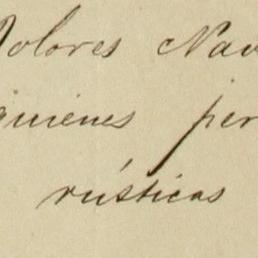 Dolores Nav
quienes per
rústicas